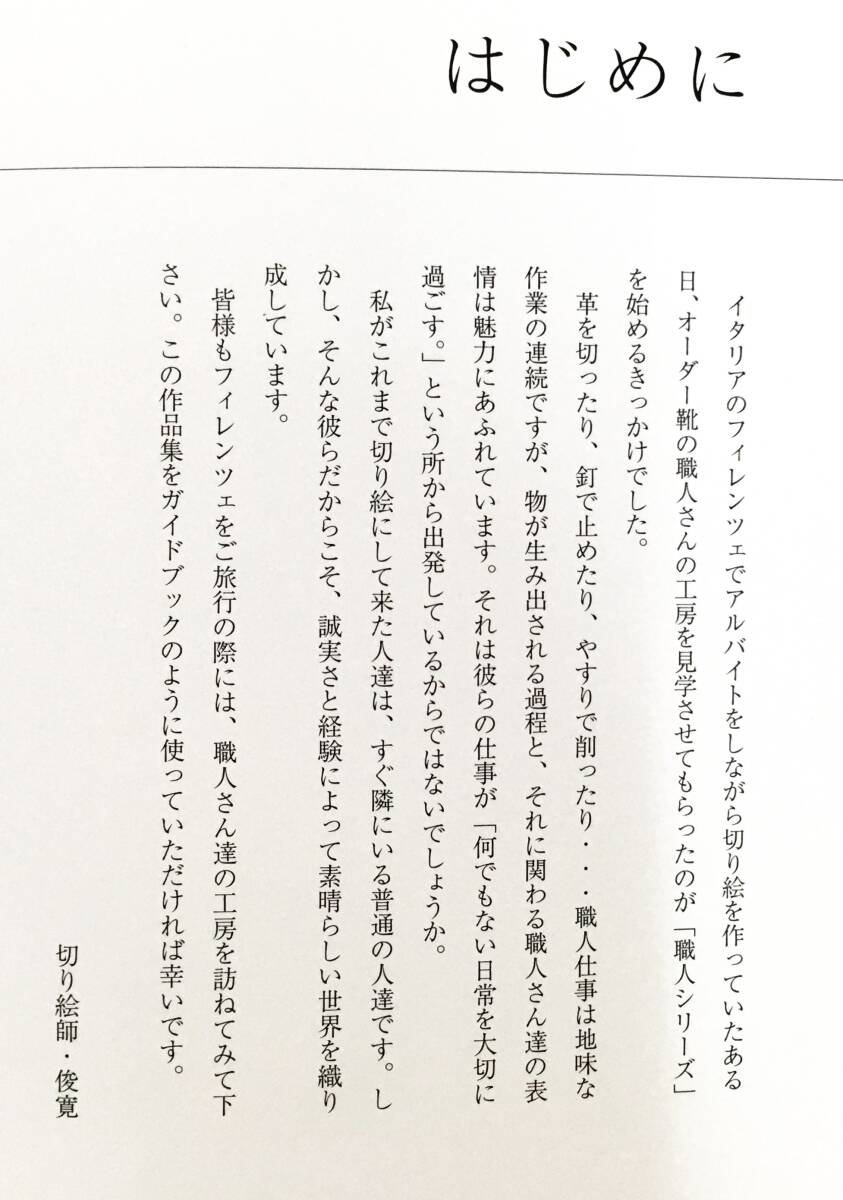 はじめに
イタリアのフィレンツェでアルバイトをしながら切り絵を作っていたある
日、オーダー靴の職人さんの工房を見学させてもらったのが「職人シリーズ」
を始めるきっかけでした。
革を切ったり、釘で止めたり、やすりで削ったり・・・職人仕事は地味な
作業の連続ですが、物が生み出される過程と、それに関わる職人さん達の表
情は魅力にあふれています。それは彼らの仕事が「何でもない日常を大切に
過ごす。」という所から出発しているからではないでしょうか。
私がこれまで切り絵にして来た人達は、すぐ隣にいる普通の人達です。し
かし、そんな彼らだからこそ、誠実さと経験によって素晴らしい世界を織り
成しています。
皆様もフィレンツェをご旅行の際には、職人さん達の工房を訪ねてみて下
さい。この作品集をガイドブックのように使っていただければ幸いです。
切り絵師・俊寛